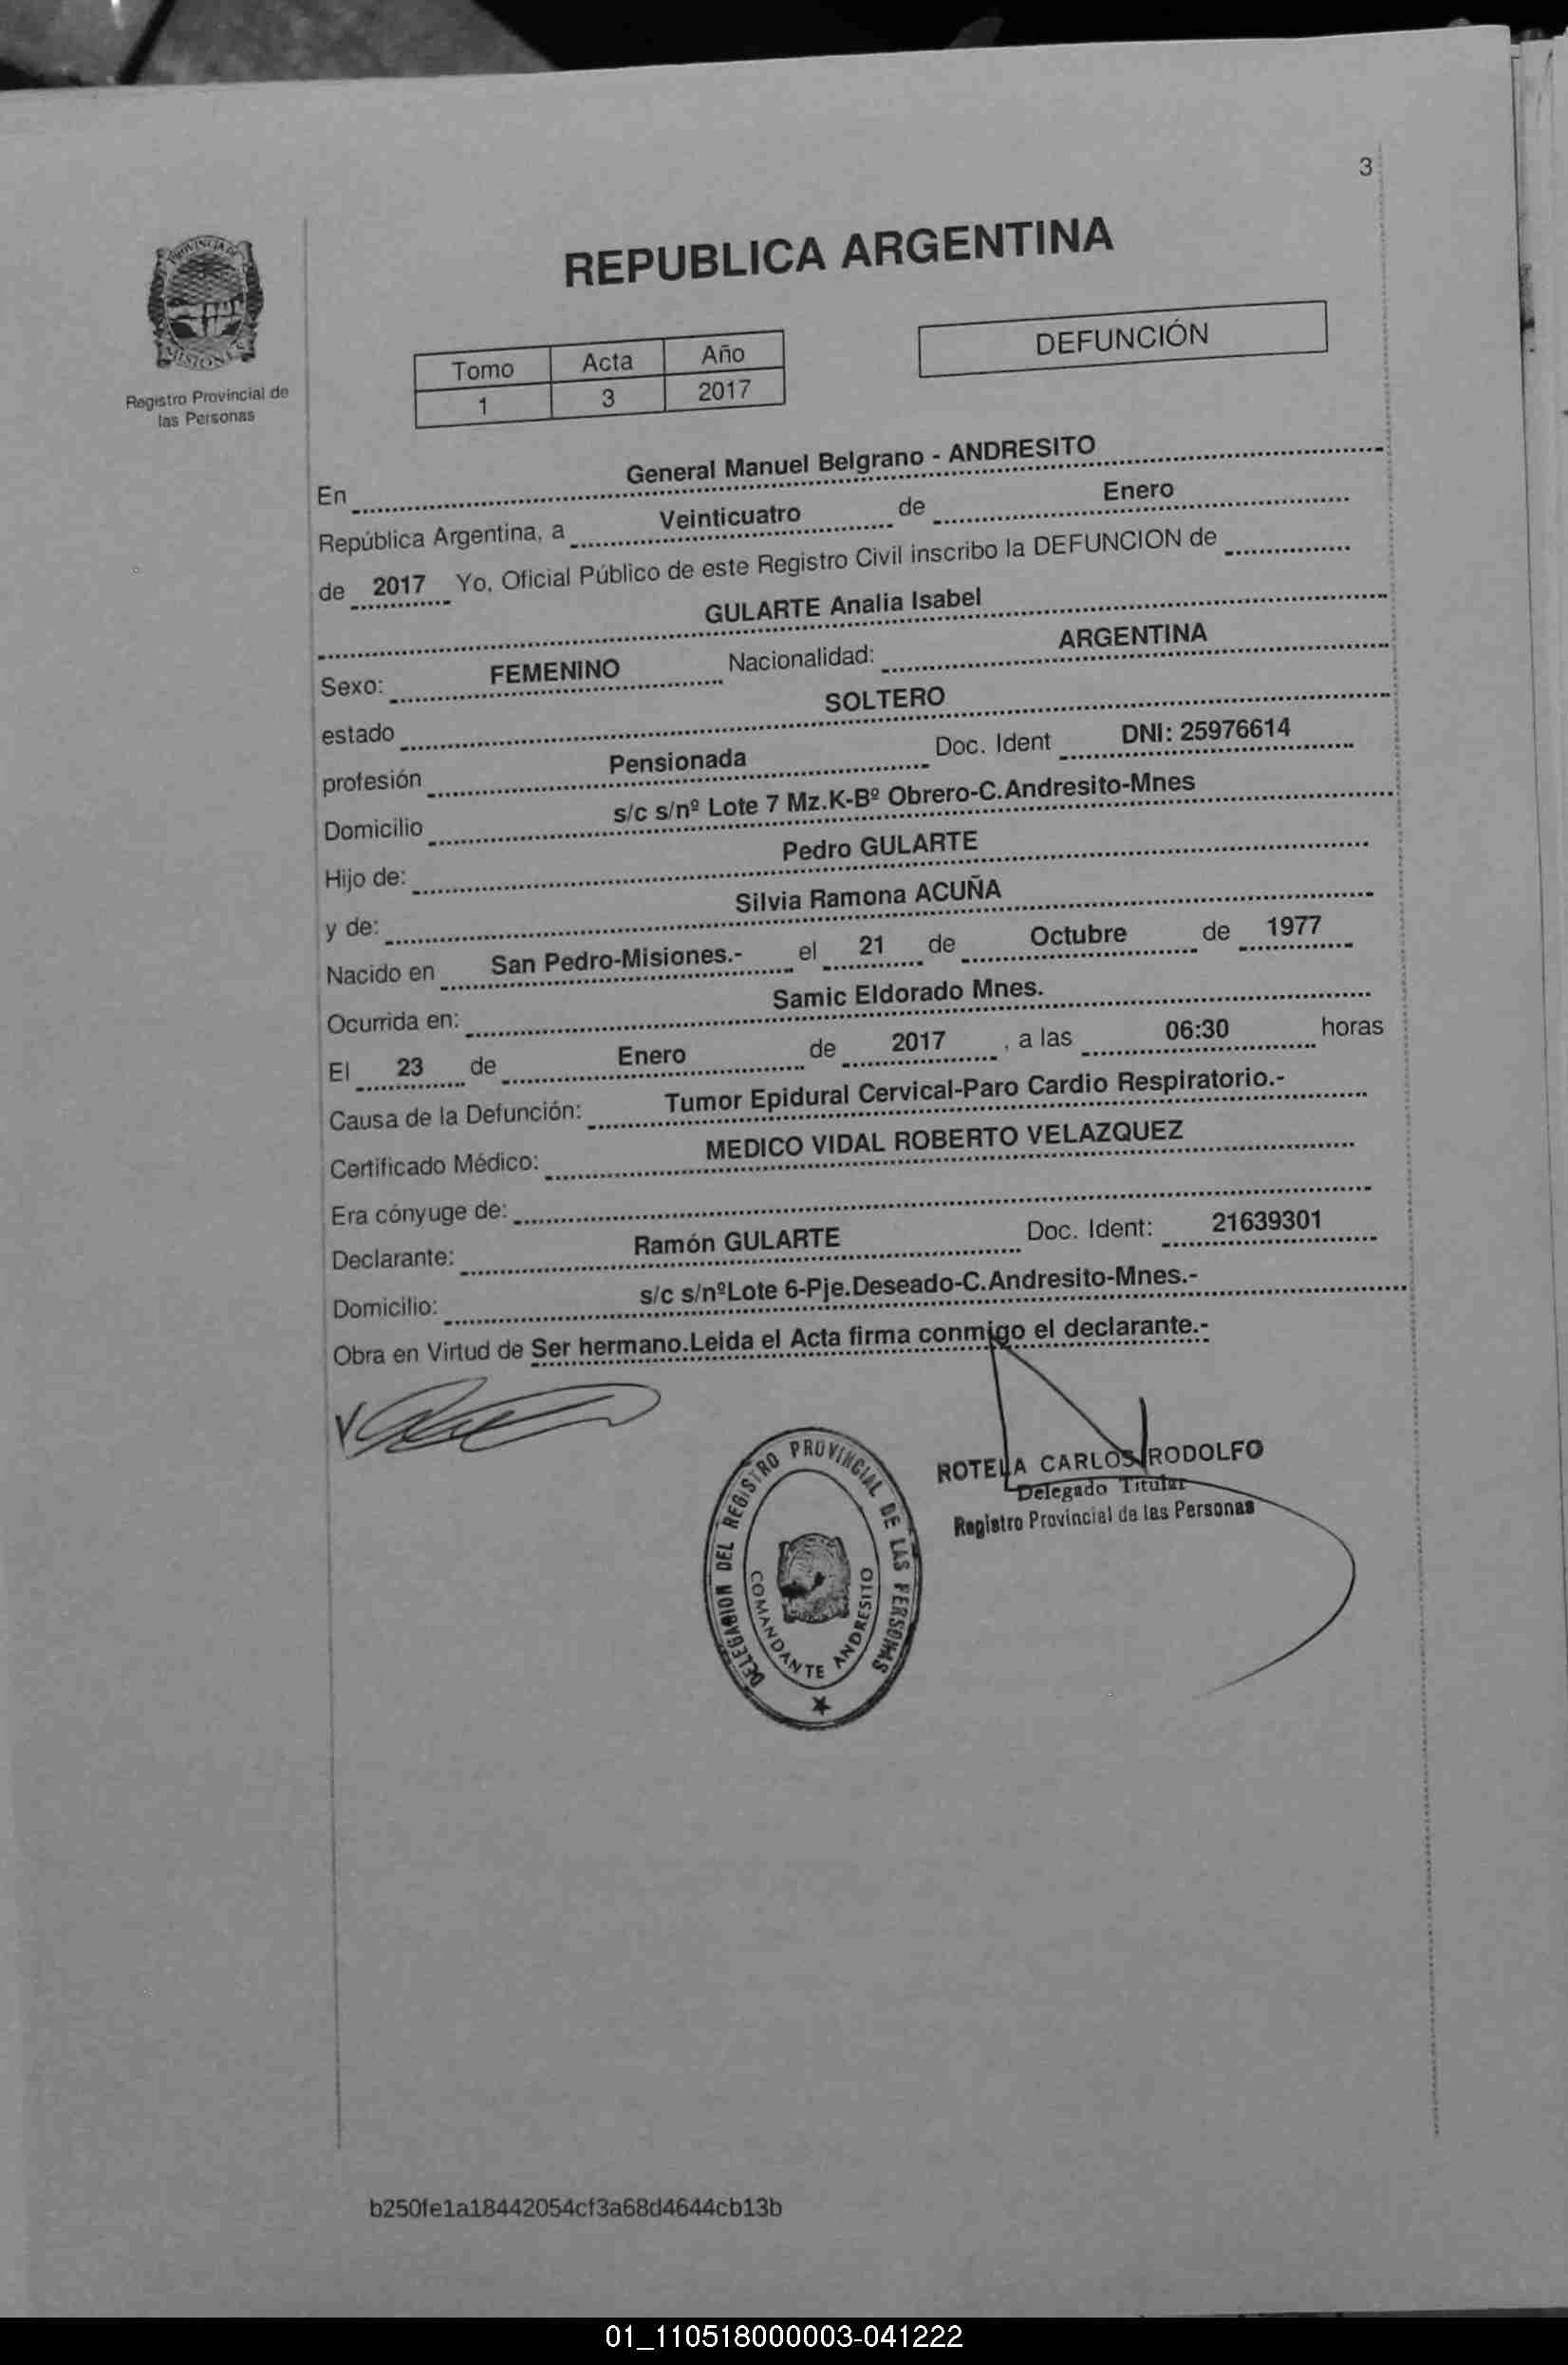 3
PROVINCIA DE
MISIONES
Registro Provincial de
las Personas
REPUBLICA ARGENTINA
Tomo Acta Año
1 3 2017
DEFUNCIÓN
En General Manuel Belgrano - ANDRESITO
República Argentina, a Veinticuatro de Enero
de 2017 Yo, Oficial Público de este Registro Civil inscribo la DEFUNCION de
GULARTE Analia Isabel
Sexo: FEMENINO Nacionalidad: ARGENTINA
estado SOLTERO
profesión Pensionada Doc. Ident DNI: 25976614
Domicilio s/c s/nº Lote 7 Mz.K-Bº Obrero-C.Andresito-Mnes
Hijo de: Pedro GULARTE
y de: Silvia Ramona ACUÑA
Nacido en San Pedro-Misiones.- el 21 de Octubre de 1977
Ocurrida en: Samic Eldorado Mnes.
El 23 de Enero de 2017 , a las 06:30 horas
Causa de la Defunción: Tumor Epidural Cervical-Paro Cardio Respiratorio.-
Certificado Médico: MEDICO VIDAL ROBERTO VELAZQUEZ
Era cónyuge de:
Declarante: Ramón GULARTE Doc. Ident: 21639301
Domicilio: s/c s/nºLote 6-Pje.Deseado-C.Andresito-Mnes.-
Obra en Virtud de Ser hermano.Leida el Acta firma conmigo el declarante.-
DELEGACION DEL REGISTRO PROVINCIAL DE LAS PERSONAS
COMANDANTE ANDRESITO
ROTELA CARLOS RODOLFO
Delegado Titular
Registro Provincial de las Personas
b250fe1a18442054cf3a68d4644cb13b
01_110518000003-041222